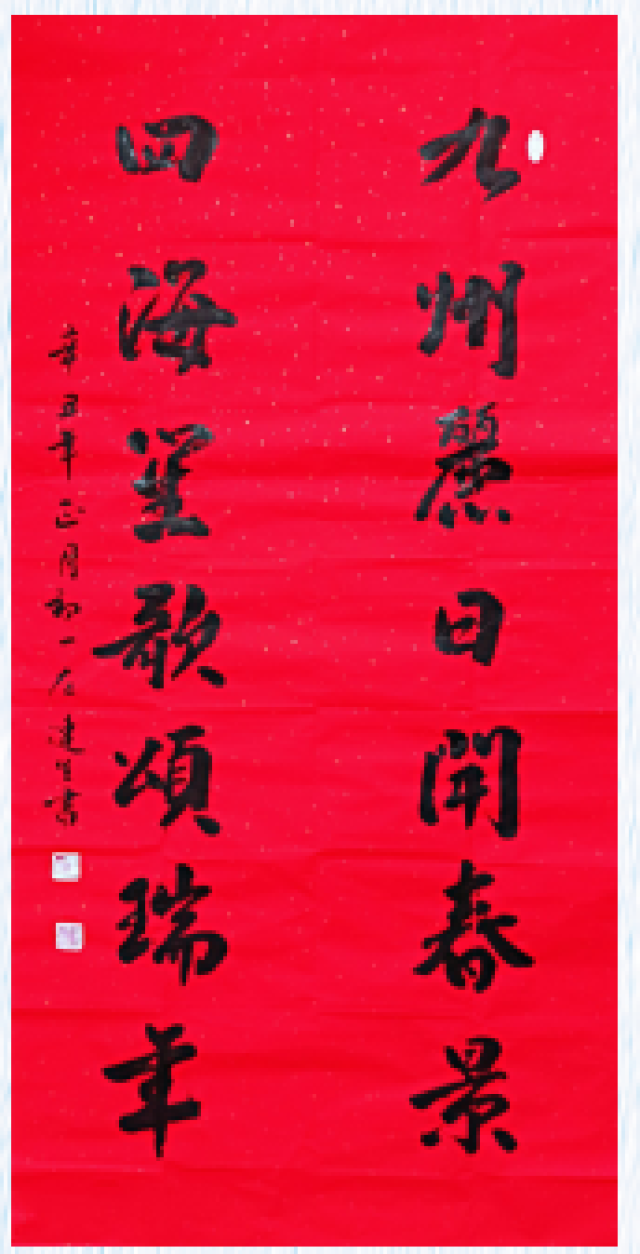 九州麗日開春景
四海笙歌頌瑞年
辛丑年正月初一